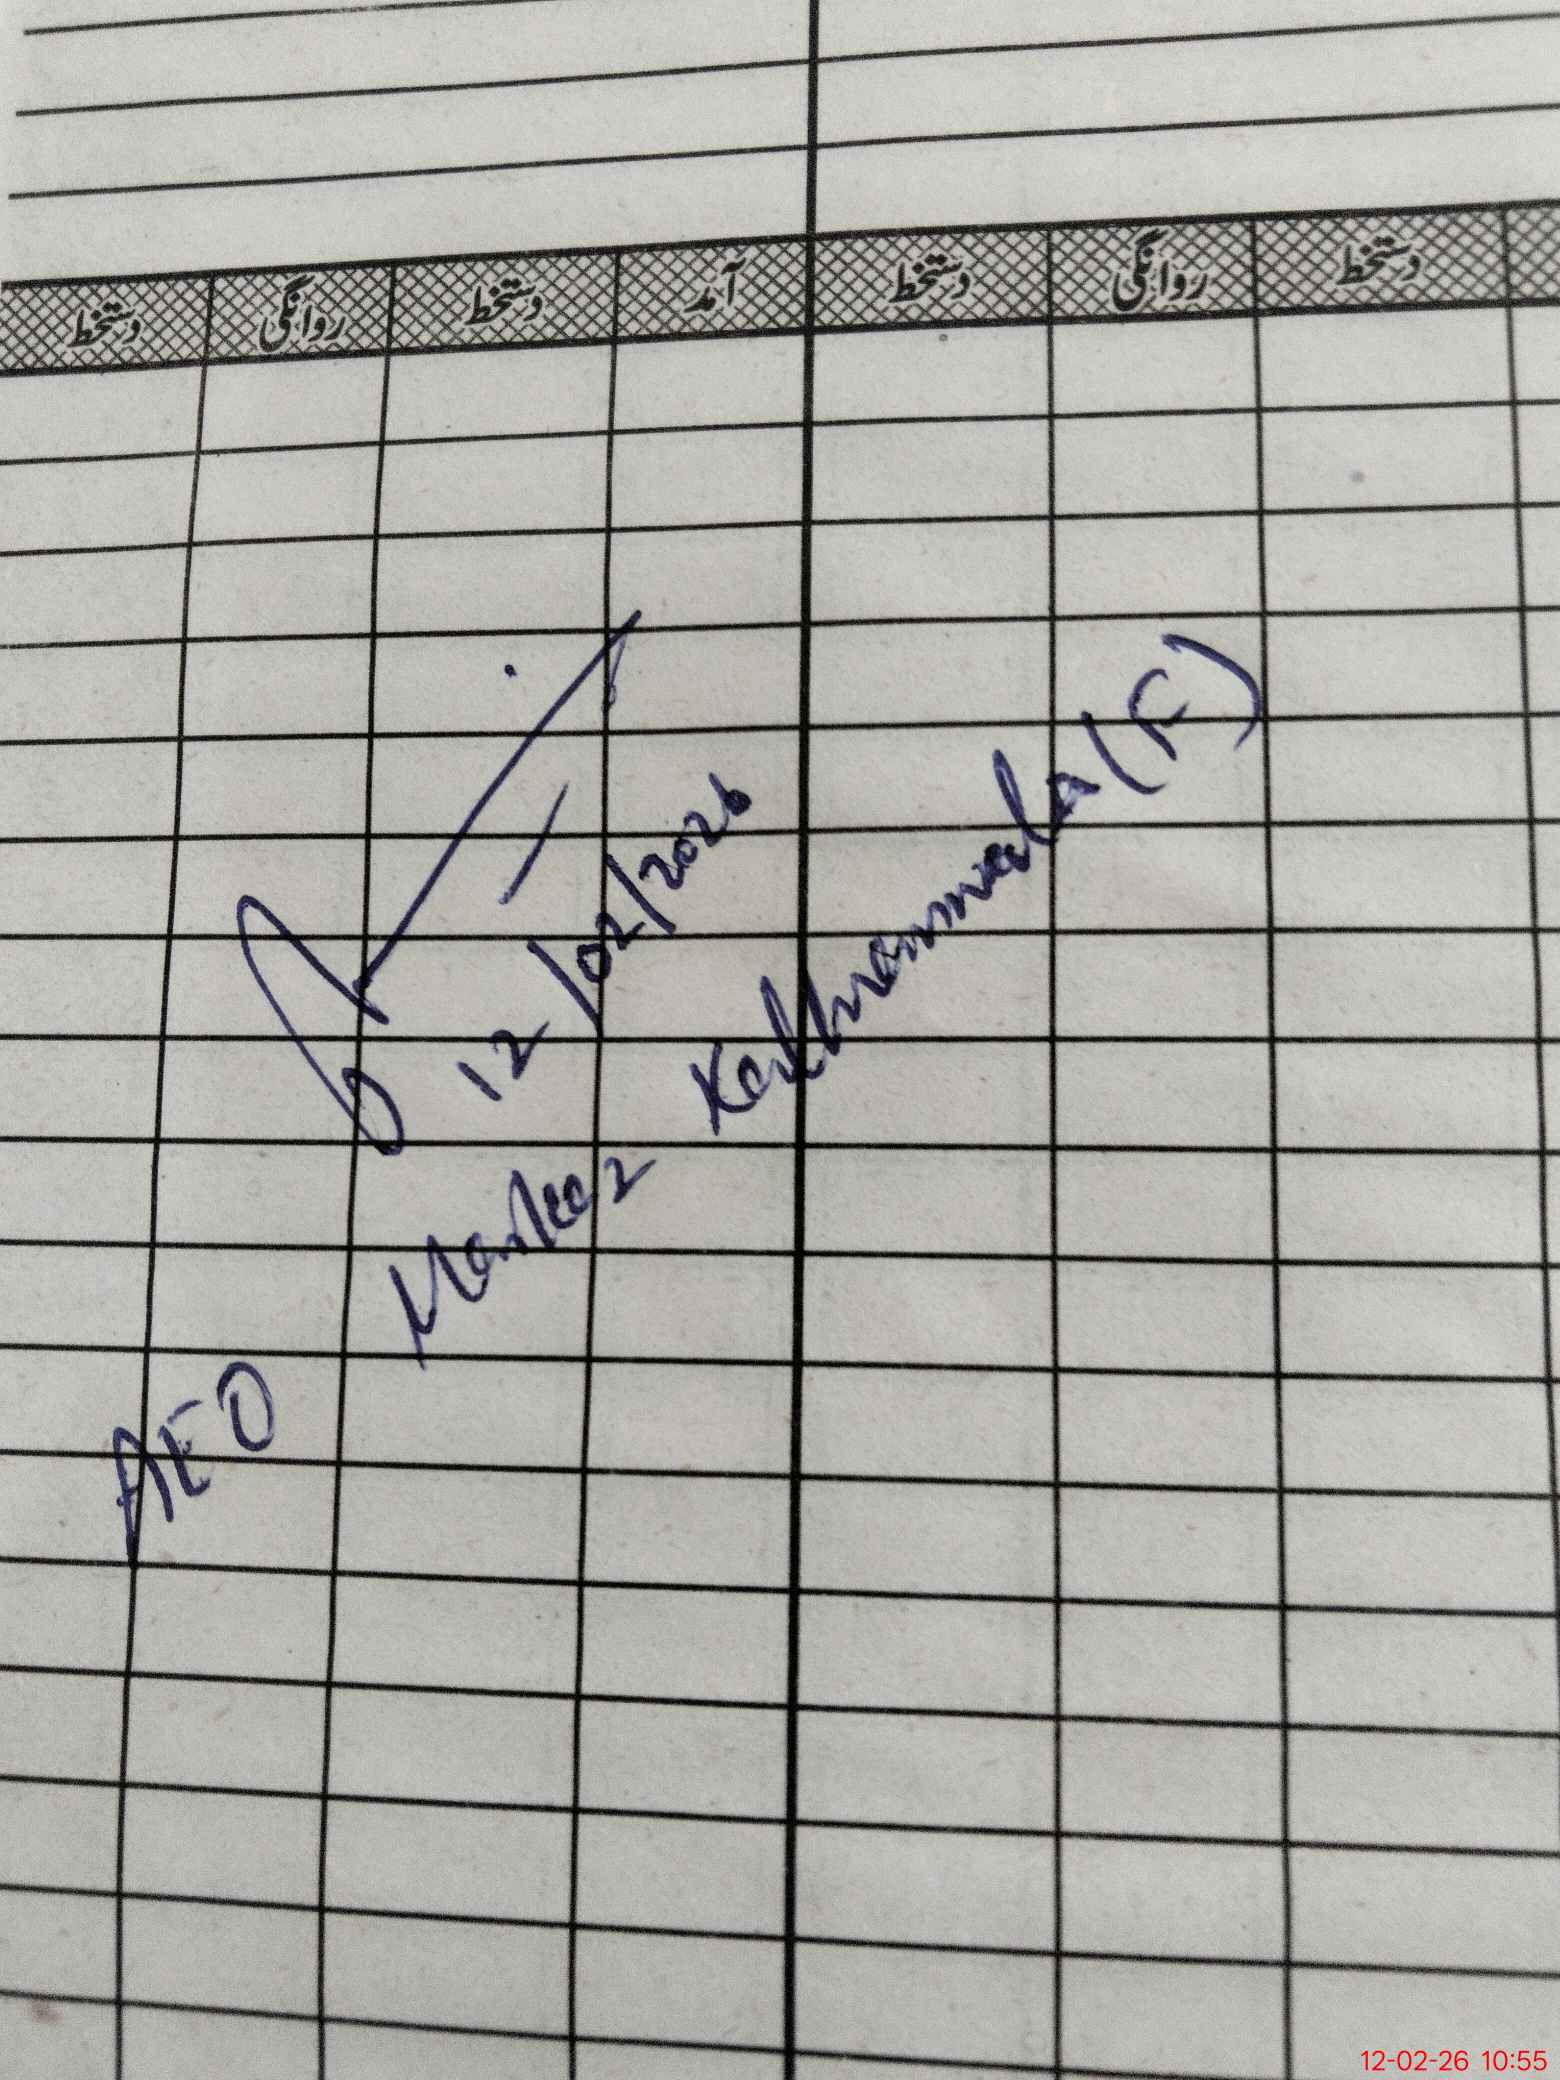 دستخط روانگی دستخط آمد دستخط روانگی دستخط
12/02/2026
AEO Markaz (F)
12-02-26 10:55